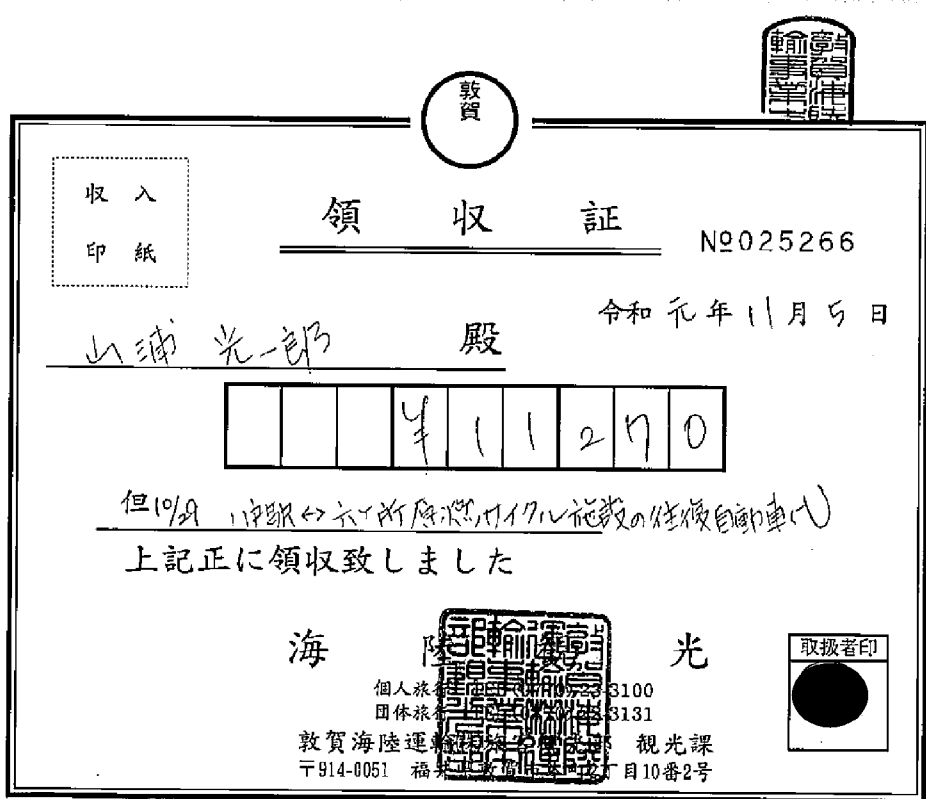 敦賀
収入
印紙
領収証
№025266
令和元年11月5日
山浦 光一郎 殿
¥11270
但10/29 八戸駅↔六ヶ所原燃サイクル施設の往復自動車代
上記正に領収致しました
海陸観光
取扱者印
個人旅行 23-3100
団体旅行 3131
敦賀海陸運輸 観光課
〒914-0051 福井県敦賀市 丁目10番2号